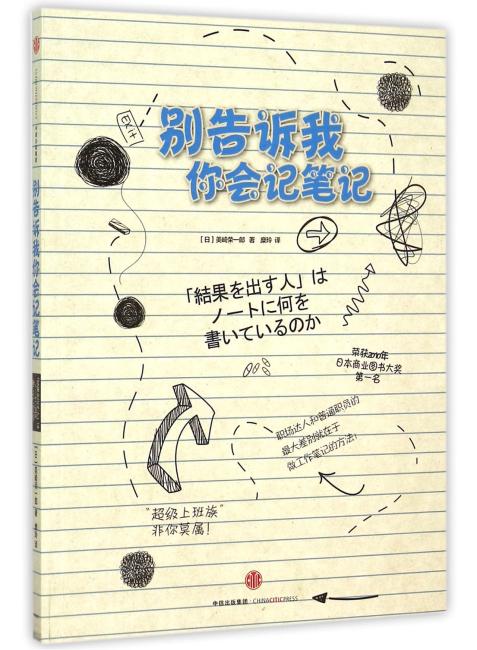 EXIT
别告诉我
你会记笔记
[日] 美崎荣一郎 著 糜玲 译
「結果を出す人」は
ノートに何を
書いているのか
荣获2010年
日本商业图书大奖
第一名
职场达人和普通职员的
最大差别就在于
做工作笔记的方法!
“超级上班族”
非你莫属!
中信出版集团·CHINACITICPRESS
别告诉我你会记笔记
[日] 美崎荣一郎 著 糜玲 译